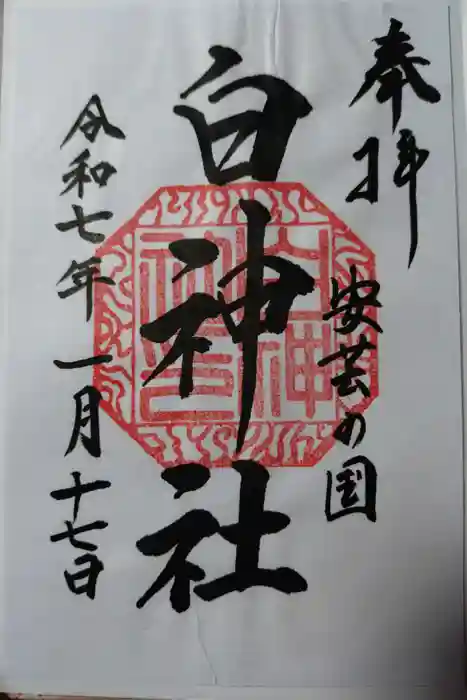 奉拝
安芸の国
白神社
令和七年一月十七日